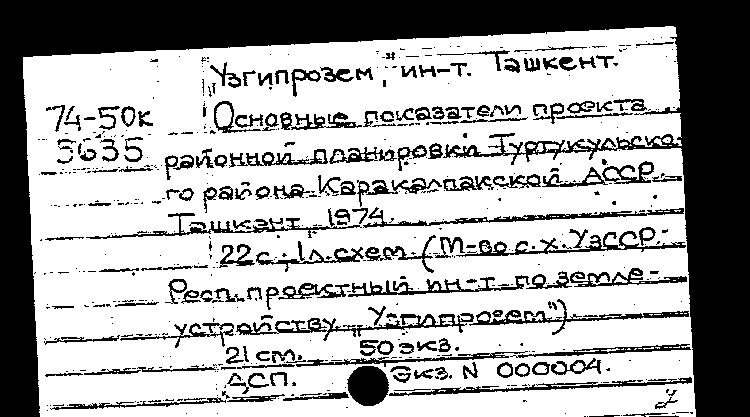 „Узгипрозем,” ин-т. Ташкент.
74-50к Основные показатели проекта
5635 районной планировки Турткульско-
го района Каракалпакской АССР.
Ташкент, 1974.
22с.; 1л. схем. (М-во с.х. УзССР.
Респ. проектный ин-т по земле-
устройству „Узгипрозем”).
21 см. 50 экз.
ДСП. Экз. N 000004.